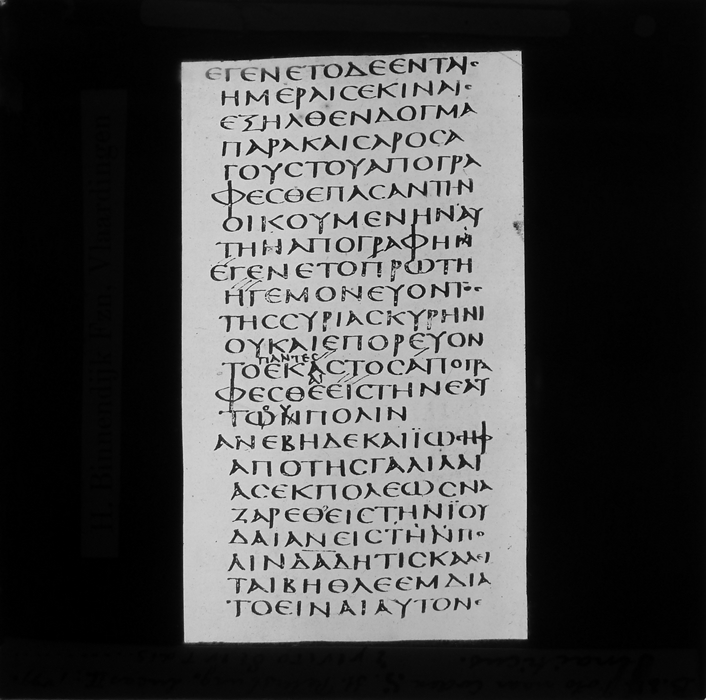 ΕΓΕΝΕΤΟΔΕΕΝΤΑΙϹ
ΗΜΕΡΑΙϹΕΚΙΝΑΙϹ
ΕΞΗΛΘΕΝΔΟΓΜΑ
ΠΑΡΑΚΑΙϹΑΡΟϹΑ
ΓΟΥϹΤΟΥΑΠΟΓΡΑ
ΦΕϹΘΕΠΑϹΑΝΤΗΝ
ΟΙΚΟΥΜΕΝΗΝΑΥ
ΤΗΝΑΠΟΓΡΑΦΗΝ
ΕΓΕΝΕΤΟΠΡΩΤΗ
ΗΓΕΜΟΝΕΥΟΝΤΟϹ
ΤΗϹϹΥΡΙΑϹΚΥΡΗΝΙ
ΟΥΚΑΙΕΠΟΡΕΥΟΝ
ΠΑΝΤΕϹ
ΤΟΕΚΑϹΤΟϹΑΠΟΓΡΑ
ΑΙ
ΦΕϹΘΕΕΙϹΤΗΝΕΑΥ
ΠΟΛΙΝ
ΑΝΕΒΗΔΕΚΑΙΪΩϹΗΦ
ΑΠΟΤΗϹΓΑΛΙΛΑΙ
ΑϹΕΚΠΟΛΕΩϹΝΑ
ΖΑΡΕΘΕΙϹΤΗΝΪΟΥ
ΔΑΙΑΝΕΙϹΤΗΝΠΟ
ΛΙΝΔΑΔΗΤΙϹΚΑΛΕΙ
ΤΑΙΒΗΘΛΕΕΜΔΙΑ
ΤΟΕΙΝΑΙΑΥΤΟΝΕ
H. Binnendijk Fzn. Vlaardingen